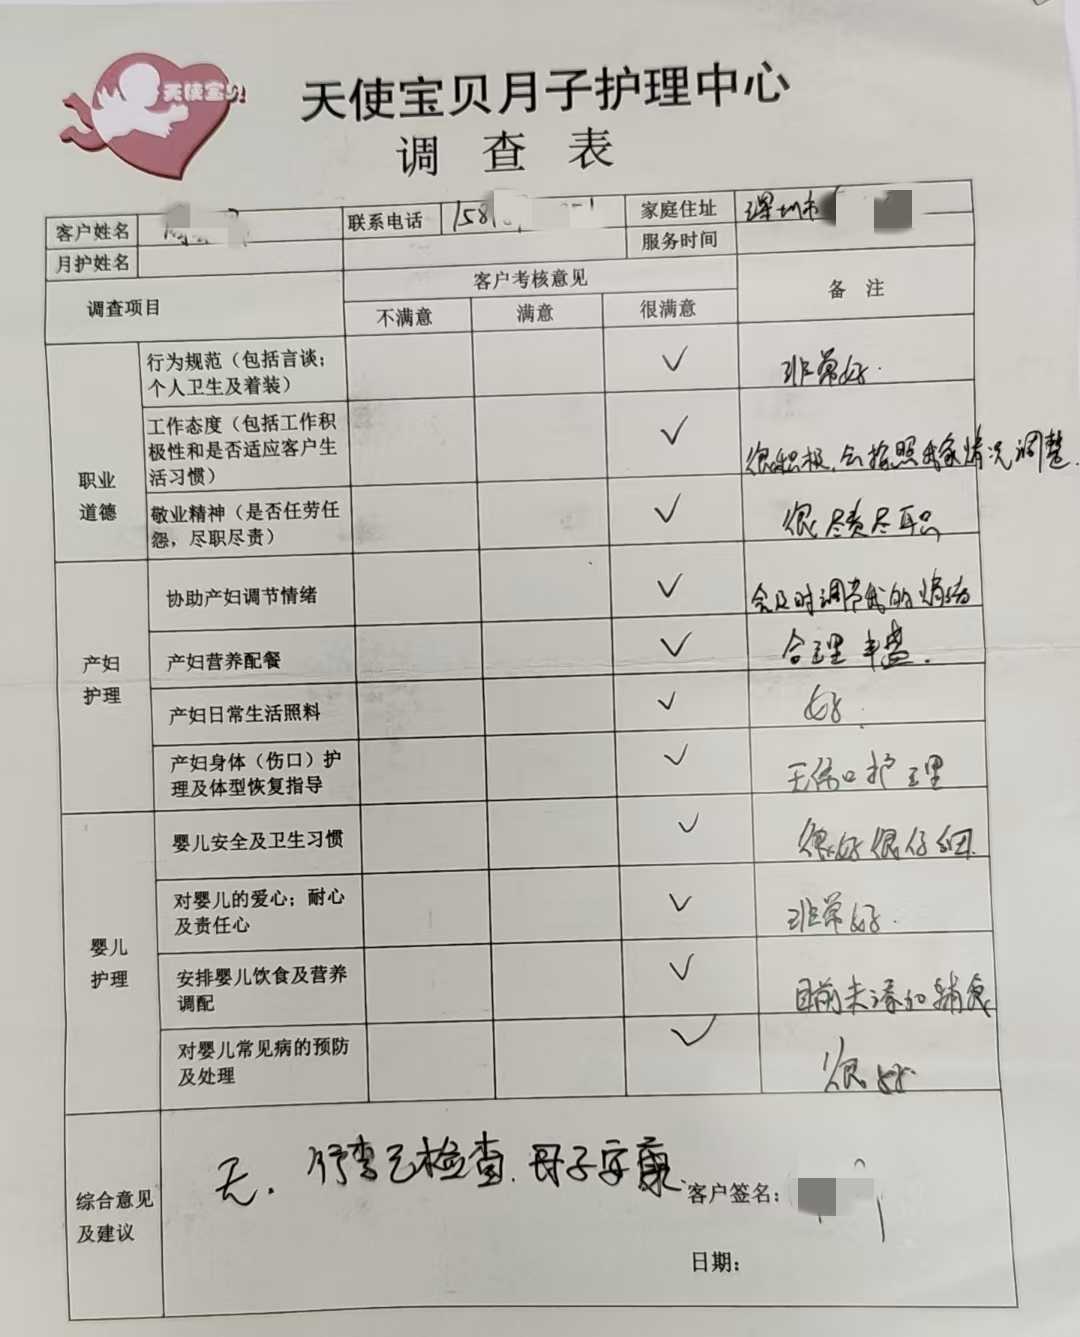 天使宝贝
天使宝贝月子护理中心
调查表
客户姓名 联系电话 158 家庭住址 深圳市
月护姓名 服务时间
调查项目 客户考核意见 备 注
不满意 满意 很满意
职业
道德
行为规范（包括言谈；
个人卫生及着装）
✓ 非常好.
工作态度（包括工作积
极性和是否适应客户生
活习惯）
✓ 很积极，会按照我家情况调整.
敬业精神（是否任劳任
怨，尽职尽责）
✓ 很尽责尽职
产妇
护理
协助产妇调节情绪 ✓ 会及时调节我的情绪
产妇营养配餐 ✓ 合理丰盛.
产妇日常生活照料 ✓ 好.
产妇身体（伤口）护
理及体型恢复指导
✓ 无伤口护理
婴儿
护理
婴儿安全及卫生习惯 ✓ 很好很仔细
对婴儿的爱心；耐心
及责任心
✓ 非常好.
安排婴儿饮食及营养
调配
✓ 目前未添加辅食
对婴儿常见病的预防
及处理
✓ 很好.
综合意见
及建议
无. 行李已检查.母子安康.
客户签名：
日期：